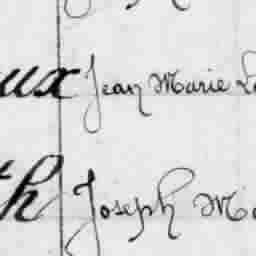 ux Jean Marie L
th Joseph M